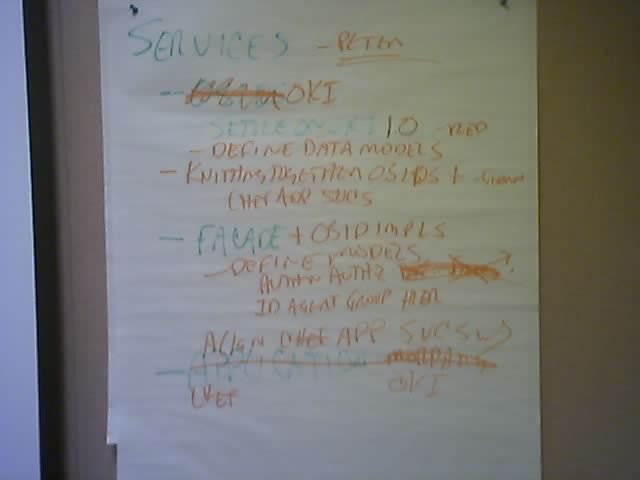 SERVICES - PETER
- OKI
SETTLE ON OKI 1.0 - RED
- DEFINE DATA MODELS
- KNITTING TOGETHER OSIDS +
CHEF APP SVCS
- FACADE + OSID IMPLS
- DEFINE MODELS
AUTHN AUTHZ
ID AGENT GROUP HIER
ALIGN CHEF APP SVCS W/
- APPLICATION
OKI